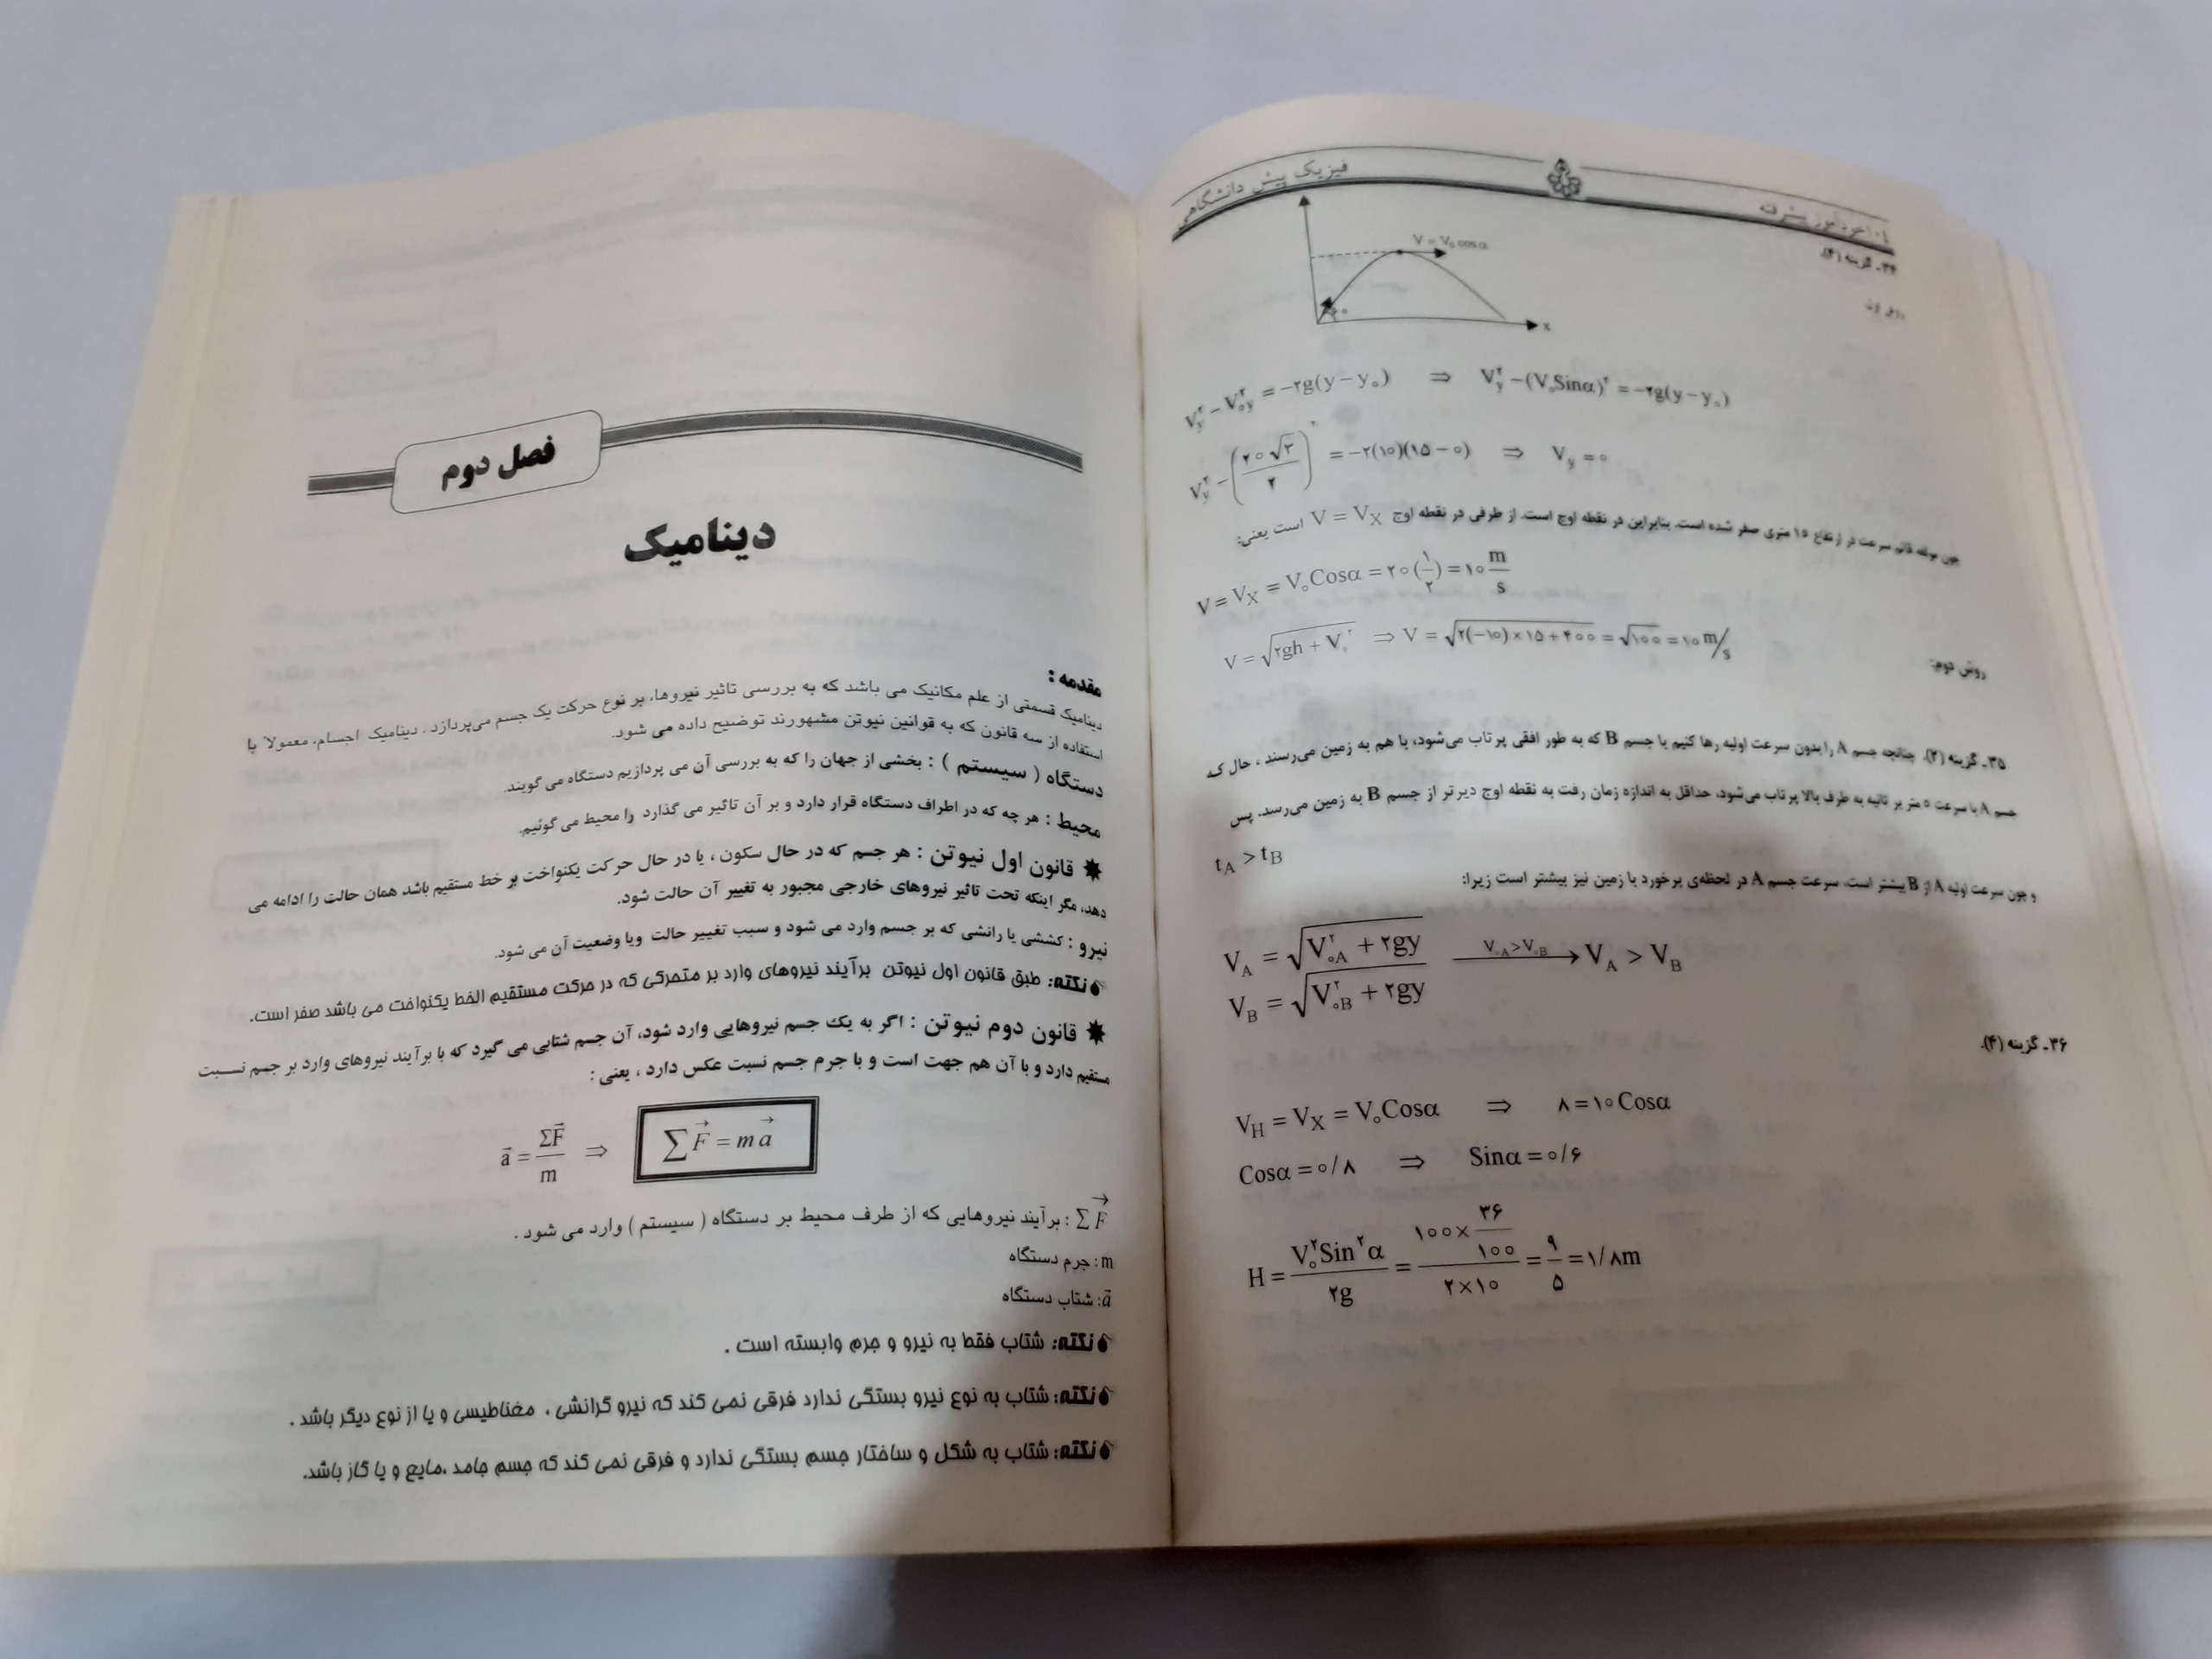 ۱۰۴/خودآموز پیشرفته
فیزیک پیش دانشگاهی
۳۴ـ گزینه (۴).
روش اول
V = V₀ cos α
۶۰
x
V_y^۲ − V_{∘y}^۲ = −۲g(y − y_∘) ⇒ V_y^۲ − (V_∘Sinα)^۲ = −۲g(y − y_∘)
V_y^۲ − (۲۰√۳/۲)^۲ = −۲(۱۰)(۱۵ − ۰) ⇒ V_y = ۰
چون مولفه قائم سرعت در ارتفاع ۱۵ متری صفر شده است. بنابراین در نقطه اوج است. از طرفی در نقطه اوج V = V_X است یعنی:
V = V_X = V_∘Cosα = ۲۰(۱/۲) = ۱۰ m/s
روش دوم:
V = √(۲gh + V_∘^۲) ⇒ V = √(۲(−۱۰)×۱۵+۴۰۰) = √۱۰۰ = ۱۰ m/s
۳۵ـ گزینه (۲). چنانچه جسم A را بدون سرعت اولیه رها کنیم با جسم B که به طور افقی پرتاب می‌شود، با هم به زمین می‌رسند ، حال که
جسم A با سرعت ۵ متر بر ثانیه به طرف بالا پرتاب می‌شود، حداقل به اندازه زمان رفت به نقطه اوج دیرتر از جسم B به زمین می‌رسد. پس
t_A > t_B
و چون سرعت اولیه A از B بیشتر است، سرعت جسم A در لحظه‌ی برخورد با زمین نیز بیشتر است زیرا:
V_A = √(V_{∘A}^۲ + ۲gy)
V_{∘A}>V_{∘B} → V_A > V_B
V_B = √(V_{∘B}^۲ + ۲gy)
۳۶ـ گزینه (۴).
V_H = V_X = V_∘Cosα ⇒ ۸ = ۱۰Cosα
Cosα = ۰/۸ ⇒ Sinα = ۰/۶
H = V_∘^۲Sin^۲α/۲g = (۱۰۰×۳۶/۱۰۰)/(۲×۱۰) = ۹/۵ = ۱/۸m
فصل دوم
دینامیک
مقدمه :
دینامیک قسمتی از علم مکانیک می باشد که به بررسی تاثیر نیروها، بر نوع حرکت یک جسم می‌پردازد . دینامیک اجسام، معمولاً با
استفاده از سه قانون که به قوانین نیوتن مشهورند توضیح داده می شود.
دستگاه ( سیستم ) : بخشی از جهان را که به بررسی آن می پردازیم دستگاه می گویند.
محیط : هر چه که در اطراف دستگاه قرار دارد و بر آن تاثیر می گذارد را محیط می گوئیم.
✸ قانون اول نیوتن : هر جسم که در حال سکون ، یا در حال حرکت یکنواخت بر خط مستقیم باشد همان حالت را ادامه می
دهد، مگر اینکه تحت تاثیر نیروهای خارجی مجبور به تغییر آن حالت شود.
نیرو : کششی یا رانشی که بر جسم وارد می شود و سبب تغییر حالت ویا وضعیت آن می شود.
نکته: طبق قانون اول نیوتن برآیند نیروهای وارد بر متحرکی که در حرکت مستقیم الخط یکنواخت می باشد صفر است.
✸ قانون دوم نیوتن : اگر به یک جسم نیروهایی وارد شود، آن جسم شتابی می گیرد که با برآیند نیروهای وارد بر جسم نسبت
مستقیم دارد و با آن هم جهت است و با جرم جسم نسبت عکس دارد ، یعنی :
a⃗ = ΣF⃗/m ⇒ ∑F⃗ = m a⃗
ΣF⃗ : برآیند نیروهایی که از طرف محیط بر دستگاه ( سیستم ) وارد می شود .
m: جرم دستگاه
a⃗: شتاب دستگاه
نکته: شتاب فقط به نیرو و جرم وابسته است .
نکته: شتاب به نوع نیرو بستگی ندارد فرقی نمی کند که نیرو گرانشی ، مغناطیسی و یا از نوع دیگر باشد .
نکته: شتاب به شکل و ساختار جسم بستگی ندارد و فرقی نمی کند که جسم جامد ،مایع و یا گاز باشد.